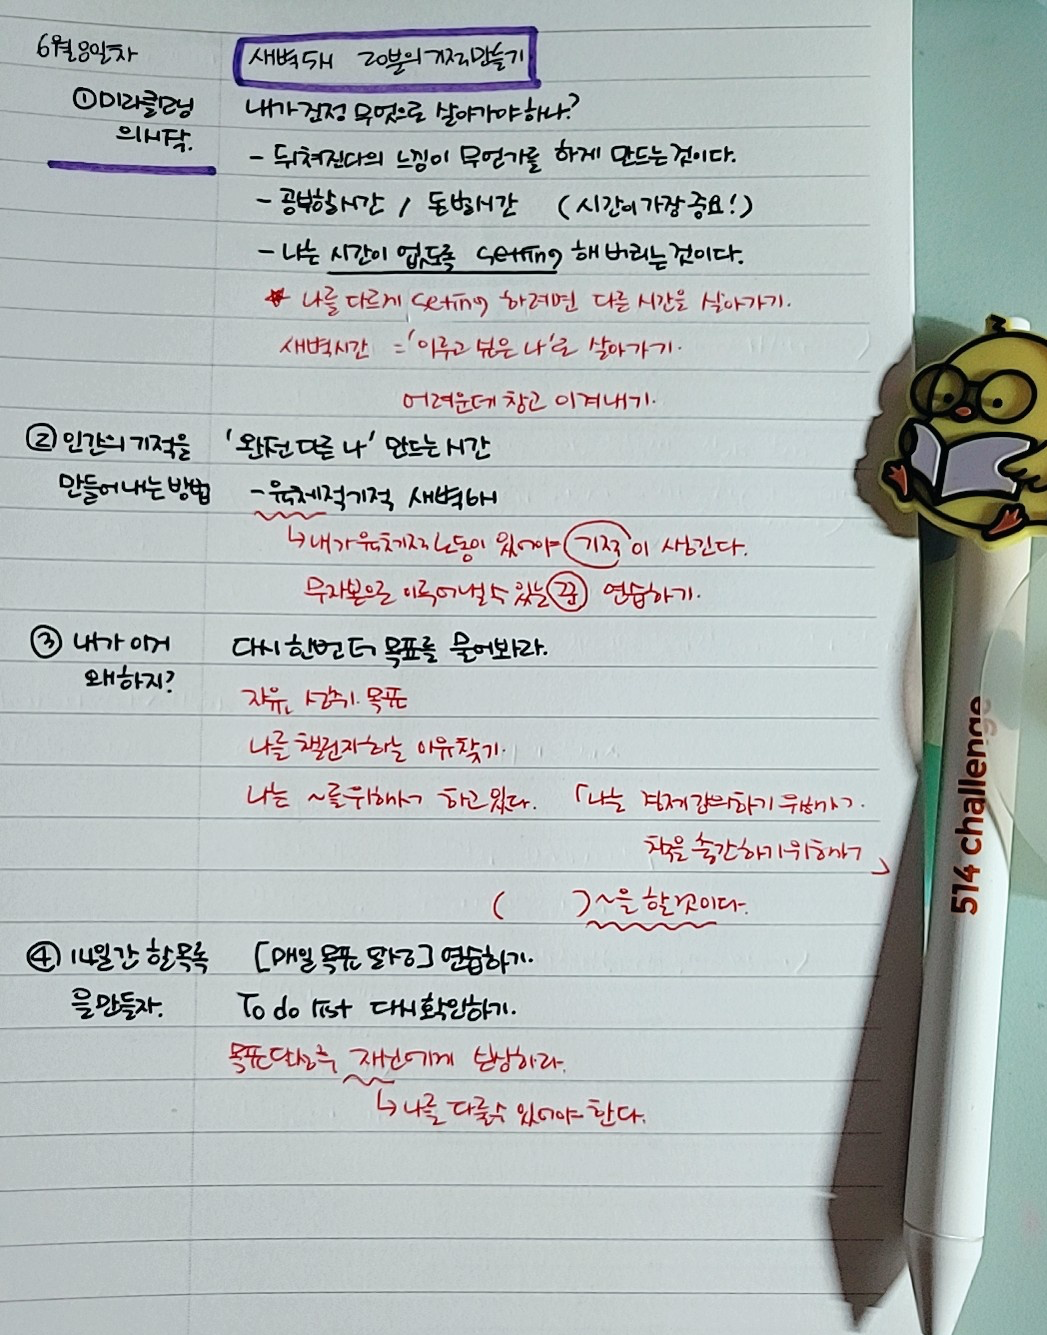 6월 8일차
새벽5시 20분의 기적만들기
① 미라클모닝
의 시작.
내가 진정 무엇으로 살아가야 하나?
- 뒤쳐진다의 느낌이 무언가를 하게 만드는 것이다.
- 공부할시간 / 돈벌시간 (시간이 가장 중요!)
- 나는 시간이 없도록 setting 해 버리는 것이다.
* 나를 다르게 setting 하려면 다른 시간을 살아가기.
새벽시간 = '이루고 싶은 나'로 살아가기.
어려운데 참고 이겨내기.
② 인간의 기적을
만들어 내는 방법
'완전 다른 나' 만드는 시간
- 육체적기적 새벽5시
↳ 내가 육체적 노동이 있어야 기적이 생긴다.
무자본으로 이루어낼수 있는 꿈 연습하기.
③ 내가 이거
왜 하지?
다시 한번 더 목표를 물어봐라.
자유, 성취. 목표
나를 챌린지하는 이유찾기.
나는 ~를 위해서 하고 있다. 「나는 경제강의하기 위해서.
책을 출간하기 위해서」
( ) ~을 할 것이다.
④ 14일간 할목록
을 만들자.
[매일 목표 달성] 연습하기.
To do list 다시 확인하기.
목표달성후 자신에게 보상하라.
↳ 나를 다룰수 있어야 한다.
514 challenge